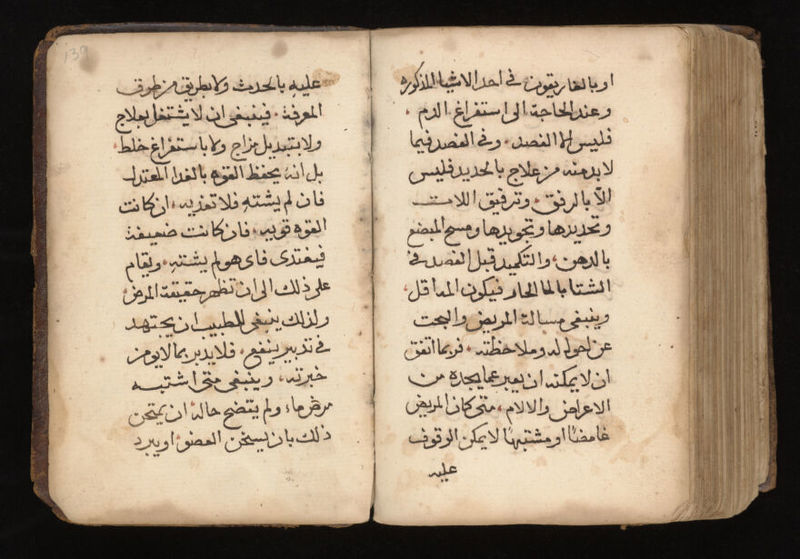 او بالغاريقون في احد الاشيا المذكوره
وعند الحاجة الى استفراغ الدم
فليس الا الفصد وفي الفصد فيما
لا بد منه من علاج بالحديد فليس
الا بالرفق وترقيق
وتحديدها وتجويدها ومسح المبضع
بالدهن والتكميد قبل الفصد في
الشتا بالما الحار فيكون الم اقل
وينبغى مسالة المريض والبحث
عن احواله وملاحظته فربما اتفق
ان لا يمكنه ان يعبر عما يجده من
الاعراض والالام متى كان المريض
غامضا او مشتبها لا يمكن الوقوف
عليه
139
عليه بالحدث ولا بطريق من طرق
المعرفة فينبغى ان لا يشتغل بعلاج
ولا بتبديل مزاج ولا باستفراغ خلط
بل انه يحفظ القوه بالغدا المعتدل
فان لم يشته فلا تغذيه ان كانت
القوه قويه فان كانت ضعيفة
فيغتدى فاى هو لم يشته ويقام
على ذلك الى ان تظهر حقيقة المرض
ولذلك ينبغى للطبيب ان يجتهد
في تدبير ينفع فلا يدبر بما لا يومن
خبرته وينبغى متى اشتبه
مرض ما ولم يتضح حاله ان يمتحن
ذلك بان يسخن العضو او يبرد